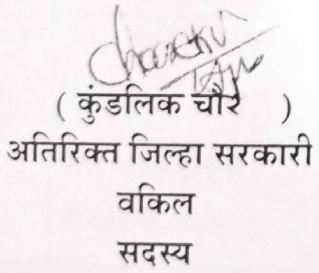 ( कुंडलिक चौरे )
अतिरिक्त जिल्हा सरकारी
वकिल
सदस्य